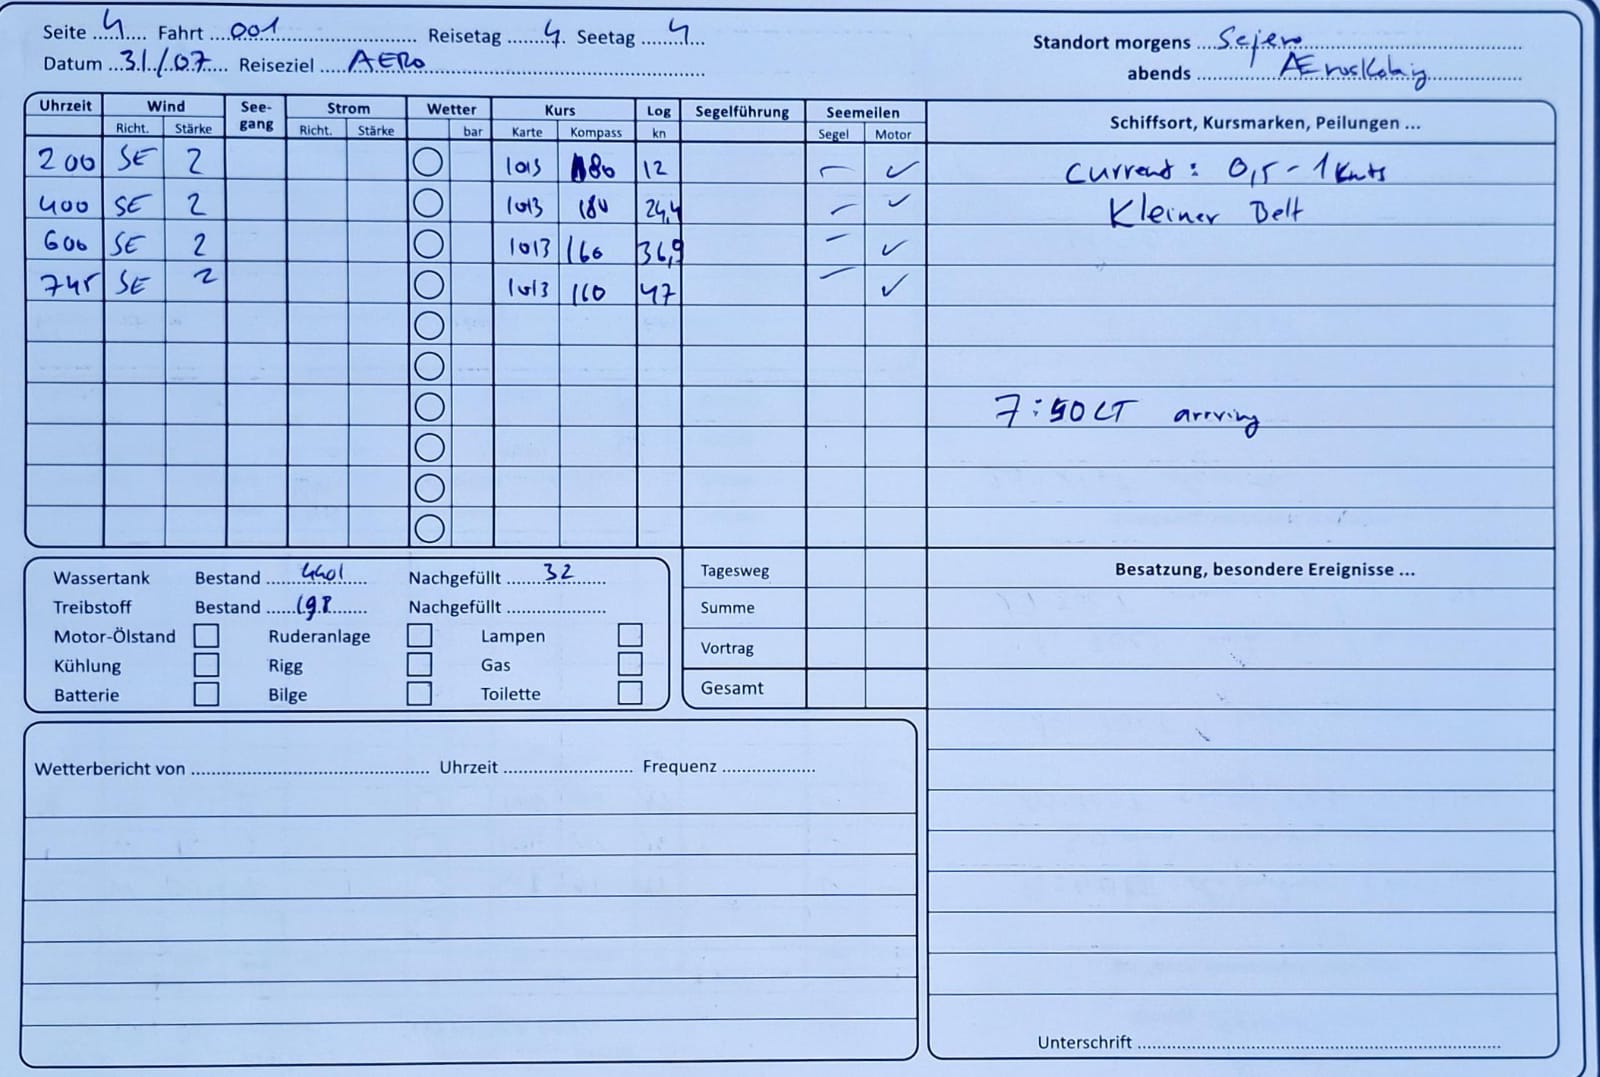 Seite 4 Fahrt 001 Reisetag 4 Seetag 4 Standort morgens Sejero
Datum 31/07 Reiseziel AERO abends
Uhrzeit Wind See-gang Strom Wetter Kurs Log Segelführung Seemeilen Schiffsort, Kursmarken, Peilungen ...
Richt. Stärke Richt. Stärke bar Karte Kompass kn Segel Motor
200 SE 2 1013 180 12 – ✓ Current: 0,5 - 1 Knts
400 SE 2 1013 180 24,4 – ✓ Kleiner Belt
600 SE 2 1013 160 36,9 – ✓
745 SE 2 1013 160 47 – ✓
7:50 LT arriving
Wassertank Bestand 440l Nachgefüllt 32 Tagesweg Besatzung, besondere Ereignisse ...
Treibstoff Bestand 198 Nachgefüllt Summe
Motor-Ölstand Ruderanlage Lampen Vortrag
Kühlung Rigg Gas
Batterie Bilge Toilette Gesamt
Wetterbericht von Uhrzeit Frequenz
Unterschrift